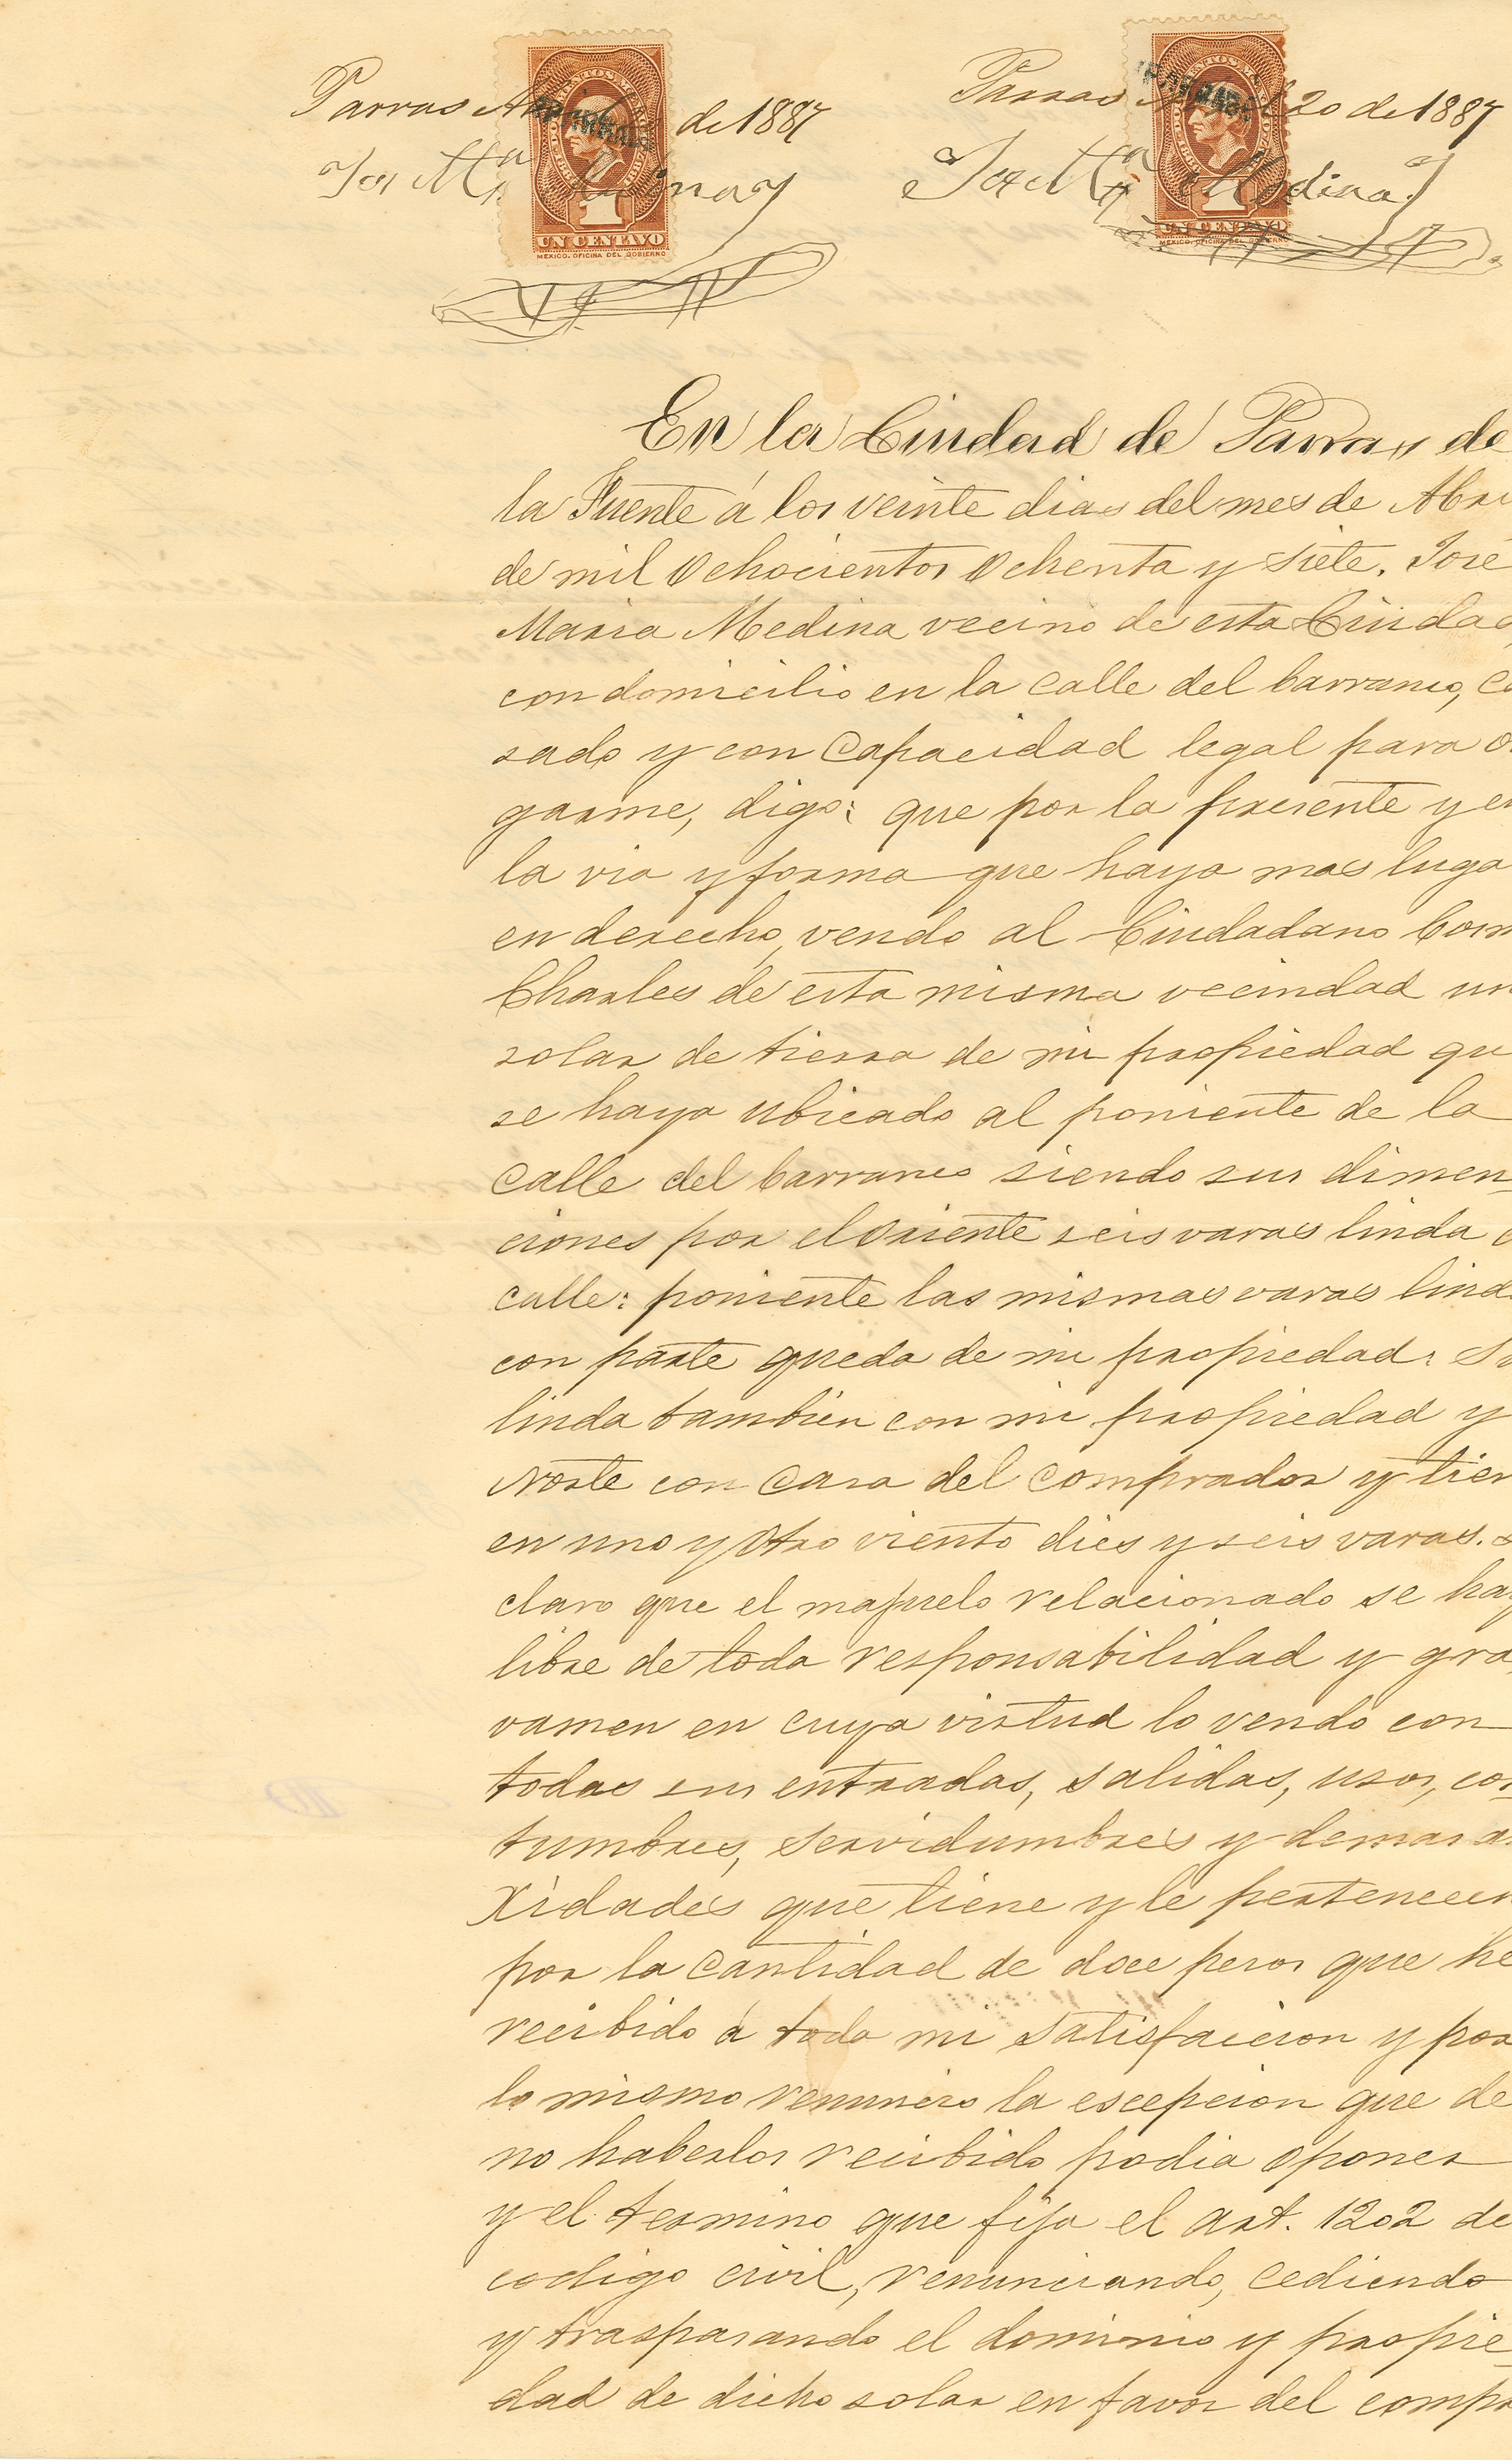 Parras Abril 20 de 1887
José Ma. Medina
UN CENTAVO
MEXICO. OFICINA DEL GOBIERNO
Parras Abril 20 de 1887
José Ma. Medina
UN CENTAVO
MEXICO. OFICINA DEL GOBIERNO
En la Ciudad de Parras de
la Fuente á los veinte dias del mes de Abri
de mil Ochocientos Ochenta y siete. José
Maria Medina vecino de esta Ciudad
con domicilio en la Calle del barranco, Ca
sado y con Capacidad legal para o
garme, digo: que por la presente y en
la via y forma que haya mas luga
en derecho, vendo al Ciudadano Cosm
Charles de esta misma vecindad un
solar de tierra de mi propiedad qu
se haya ubicado al poniente de la
Calle del barranco siendo sus dimen-
ciones por el Oriente seis varas linda c
calle: poniente las mismas varas linda
con parte queda de mi propiedad: Su
linda tambien con mi propiedad y
Norte con Casa del Comprador y tien
en uno y Otro viento dies y seis varas.
claro que el mapuelo relacionado se hay
libre de toda responsabilidad y gra
vamen en cuya virtud lo vendo con
todas sus entradas, salidas, usos, cos-
tumbres, servidumbres y demas a
xidades que tiene y le pertenecen
por la Cantidad de doce pesos que he
recibido á toda mi satisfaccion y por
lo mismo renuncio la escepcion que de
no haberlos recibido podia Oponer
y el termino que fija el art. 1202 de
codigo civil, renunciando, cediendo
y traspasando el dominio y propie-
dad de dicho solar en favor del compr